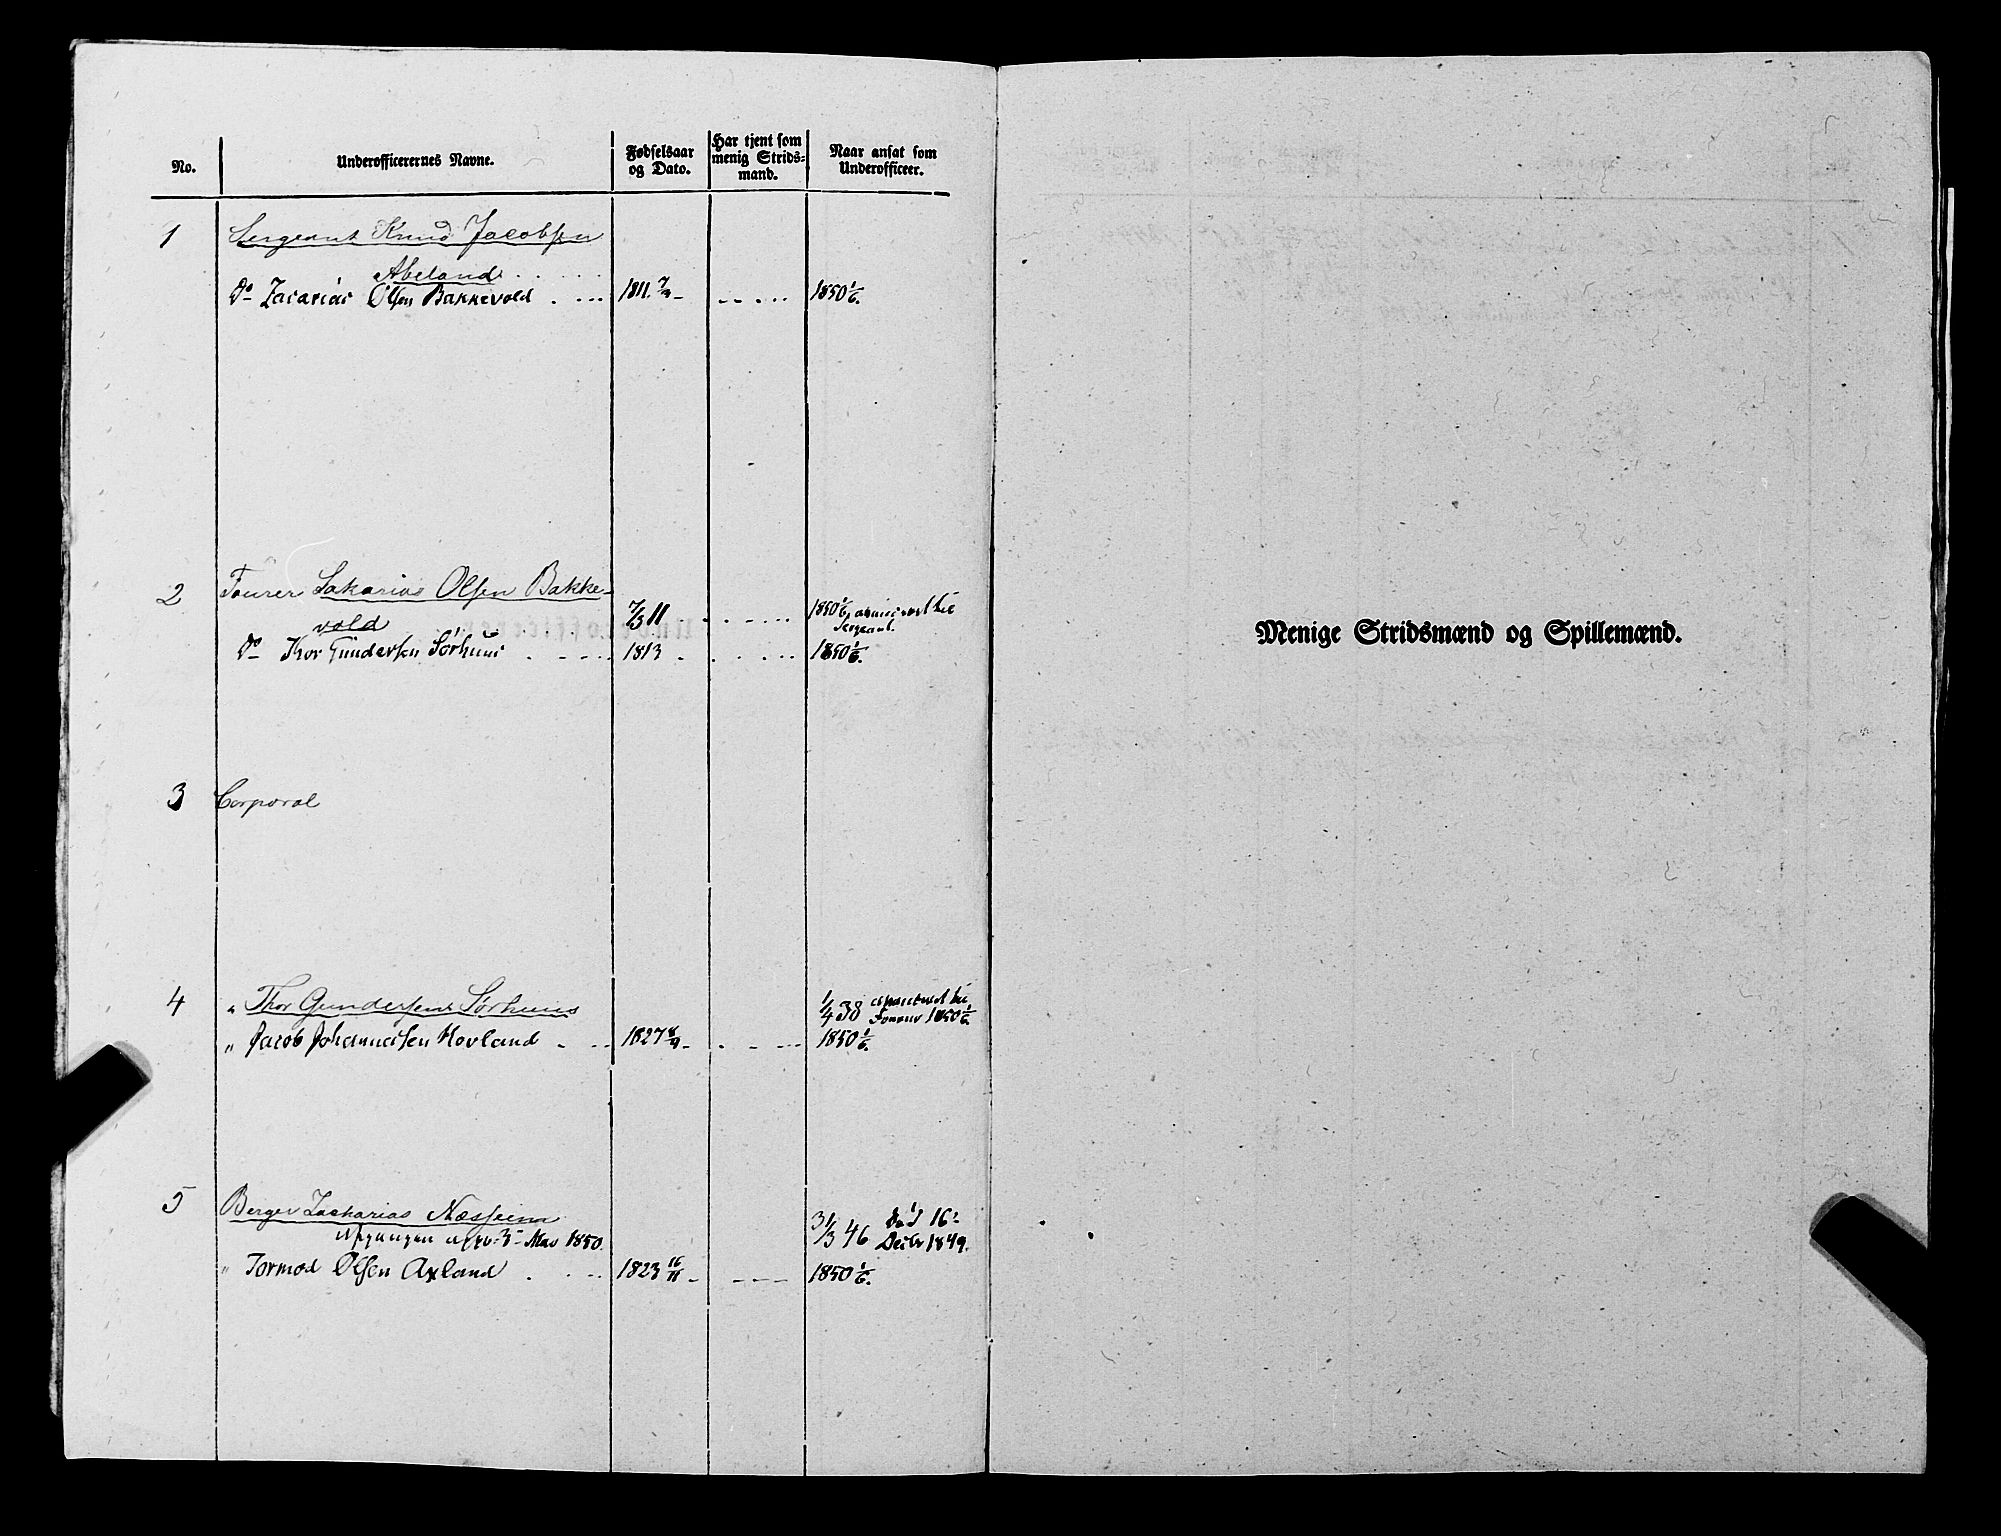 No.
Underofficerernes Navne.
Fødselsaar
og Dato.
Har tjent som
menig Strids-
mand.
Naar ansat som
Underofficeer.
1 Sergeant Knud Jacobsen
Abeland . . . . .
Do Zacarias Olsen Bakkevold . . . . 1811. 7/3 - . . . . . 1850 1/6.
2 Fourer Sakarias Olsen Bakke-
vold 7/3 11 . . . . . . 1850 1/6 avanceret til
Sergeant.
Do Thor Gundersen Sørhuus . . . . . 1813 . . . . . . 1850 1/6.
3 Corporal
4 " Thor Gundersen Sørhuus 1/4 38 avanceret til
Fourer 1850 1/6.
" Jacob Johannesen Hovland . . . 1827 8/9 - . . . . 1850 1/6.
5 Berger Zacharias Næsheim 31/3 46 Død 16de
Decbr 1849.
Afgangen 3 Mai 1850.
" Tormod Olsen Axland . . . . 1823 16/11 - - - - - 1850 1/6.
Menige Stridsmænd og Spillemænd.